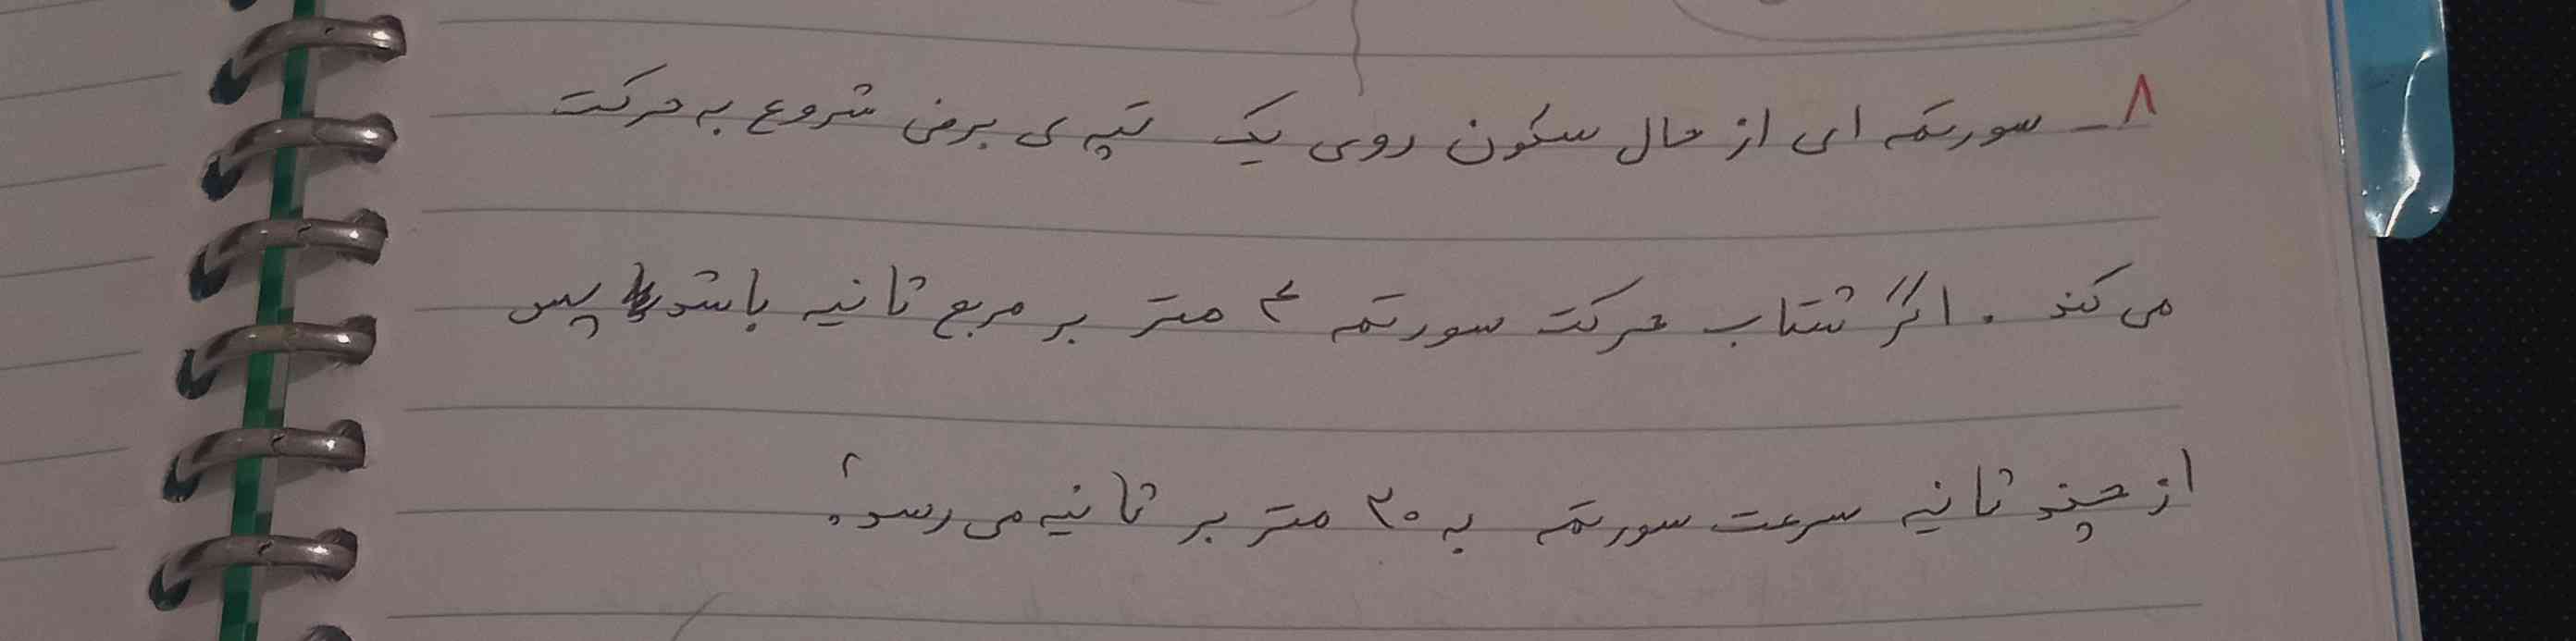 ۸- سورتمه ای از حال سکون روی یک تپه ی برفی شروع به حرکت
می کند . اگر شتاب حرکت سورتمه ۴ متر بر مربع ثانیه باشد پس
از چند ثانیه سرعت سورتمه به ۲۰ متر بر ثانیه می رسد؟